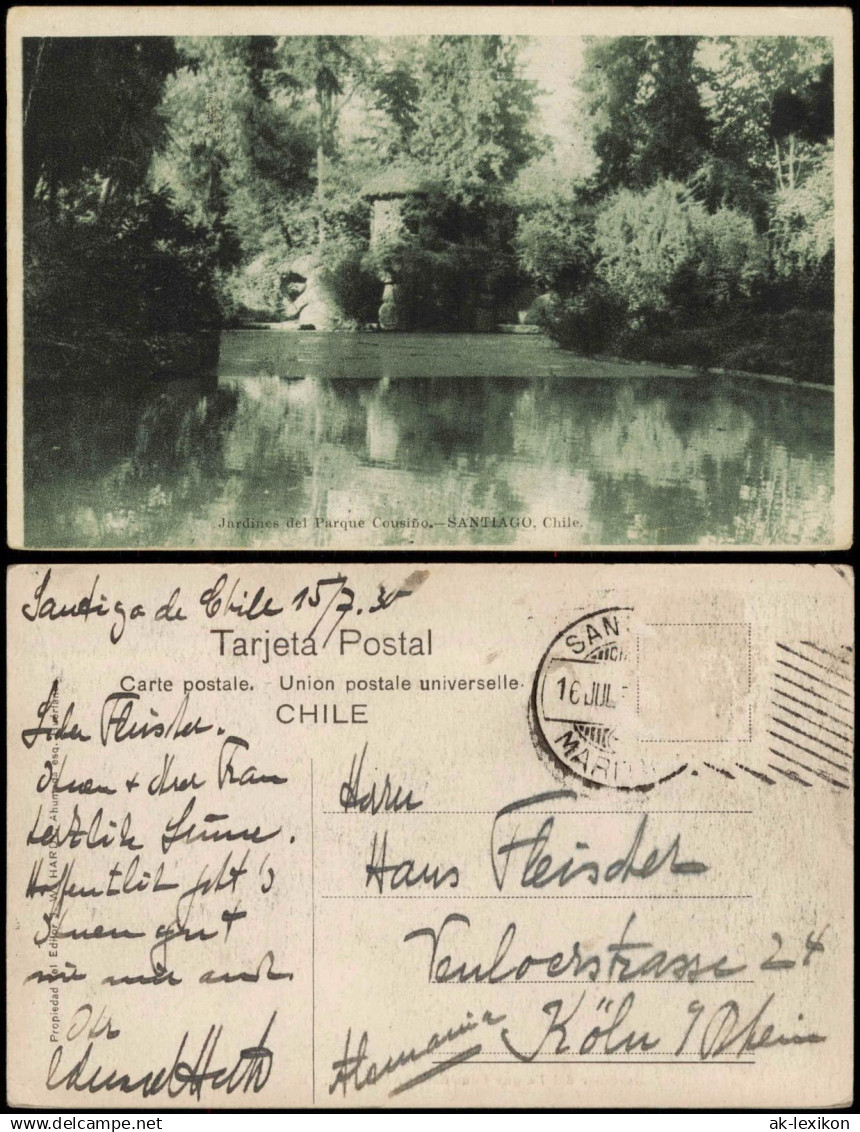 Jardines del Parque Cousiño.—SANTIAGO, Chile.
Santiago de Chile 15/7.30
Tarjeta Postal
Carte postale. - Union postale universelle.
CHILE
SAN
16 JUL
Lieber Fleischer.
Ihnen + Ihrer Frau
herzliche Grüsse.
Hoffentlich geht's
Ihnen gut
wie mir auch.
Ihr
Propiedad del Editor
Herrn
Hans Fleischer
Venloerstrasse 24
Köln a/Rhein
Alemania
ak-lexikon
© ak-lexikon.com